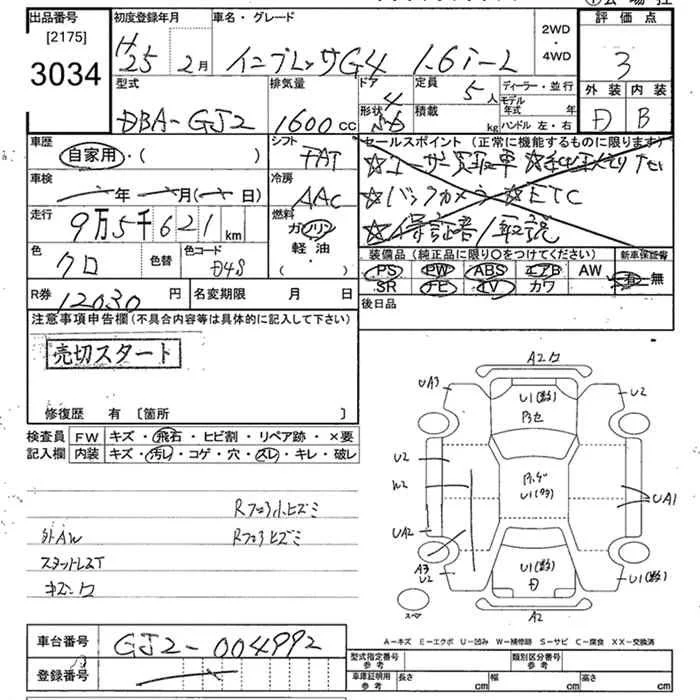 出品番号
[2175]
3034
初度登録年月
H25 2月
車名・グレード
インプレッサG4 1.6i-L
2WD
・
4WD
評価点
3
外装 内装
D B
型式
DBA-GJ2
排気量
1600cc
ドア
4
形状
定員
5人
積載
kg
ディーラー・並行
モデル年式 年
ハンドル 左・右
車歴
自家用・( )
シフト
FAT
セールスポイント(正常に機能するものに限ります)
☆ユーザー買取車
☆バックカメラ ☆ETC
車検
年 月( 日)
冷房
AAC
走行
9万5千621km
燃料
ガソリン
軽油
・( )
色
クロ
色替
色コード
D4S
装備品(純正品に限り○をつけてください)
新車保証書
PS PW ABS エアB AW
SR ナビ TV カワ
有・無
R券 12030円
名変期限 月 日
後日品
注意事項申告欄(不具合内容等は具体的に記入して下さい)
売切スタート
修復歴 有 [箇所 ]
検査員記入欄
FW キズ・飛石・ヒビ割・リペア跡・×要
内装 キズ・汚レ・コゲ・穴・スレ・キレ・破レ
Rフロア小ヒズミ
外AW
Rフロアヒズミ
スタットレスT
A2ワ
UA3
U2
U1(数)
U2
W2
U1(多)
UA1
UA2
A3
U2
U1(数)
U1(数)
スペア
A2
A-キズ E-エクボ U-凹み W-補修跡 S-サビ C-腐食 XX-交換済
車台番号
GJ2-004992
登録番号
型式指定番号参考
類別区分番号参考
車庫証明用参考
長さ cm
幅 cm
高さ cm